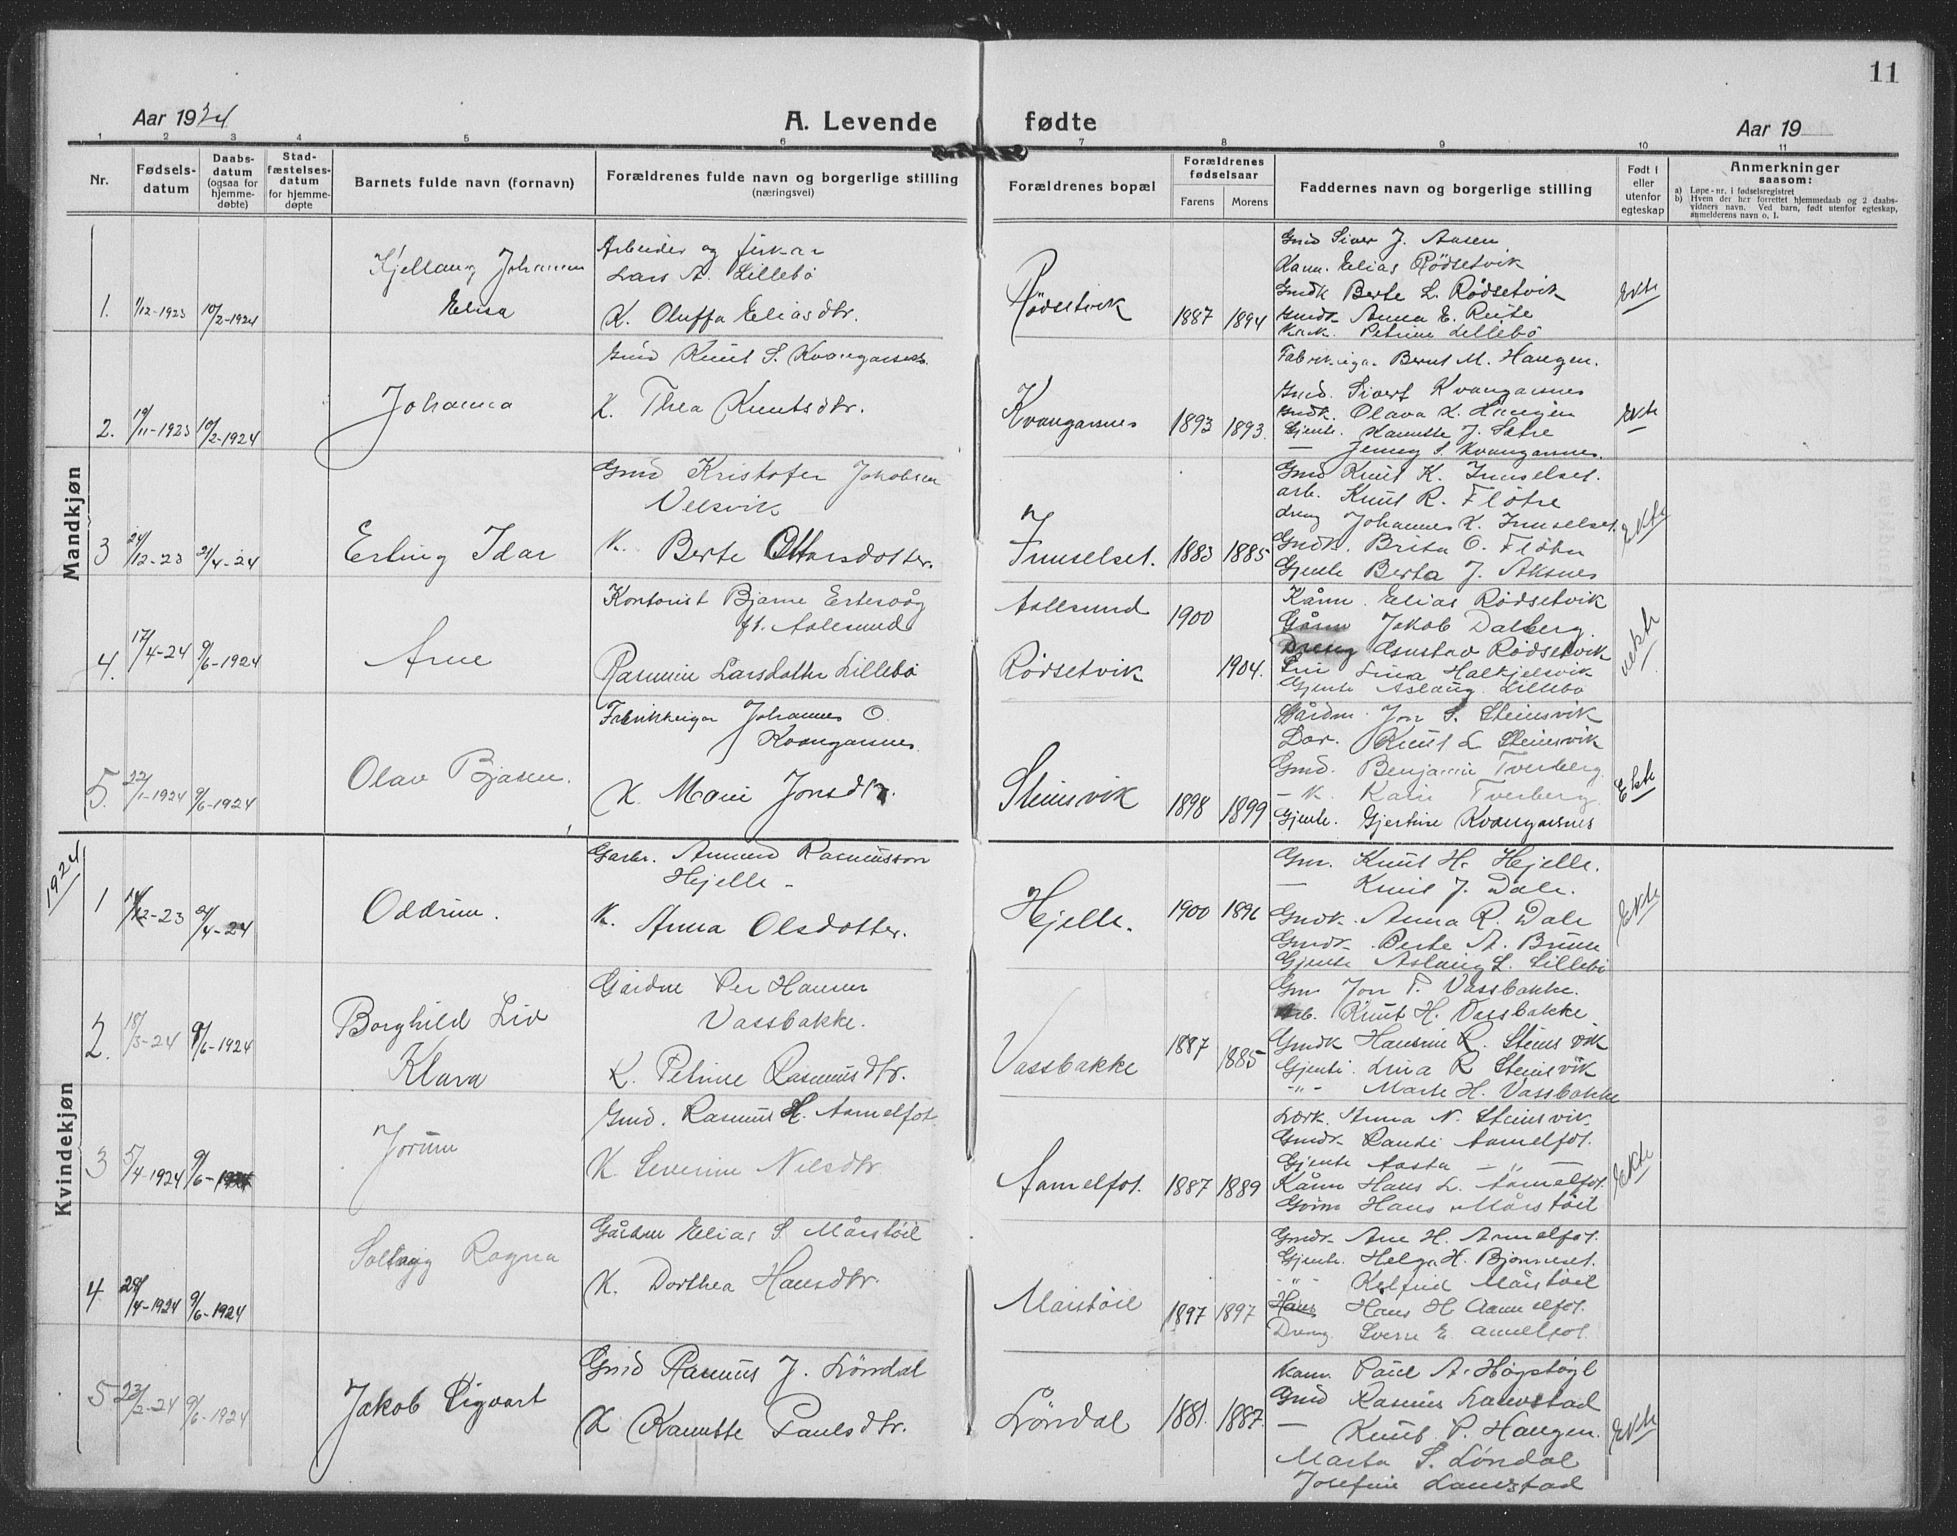 11
Aar 1924
A. Levende fødte
Aar 19
1 2 3 4 5 6 7 8 9 10 11
Nr.
Fødsels-
datum
Daabs-
datum
(ogsaa for
hjemme-
døbte)
Stad-
fæstelses-
datum
for hjemme-
døpte
Barnets fulde navn (fornavn)
Forældrenes fulde navn og borgerlige stilling
(næringsvei)
Forældrenes bopæl
Forældrenes
fødselsaar
Farens Morens
Faddernes navn og borgerlige stilling
Født i
eller
utenfor
egteskap
Anmerkninger
saasom:
a) Løpe-nr. i fødselsregistret
b) Hvem der har forrettet hjemmedaab og 2 daabs-
vidners navn. Ved barn, født utenfor egteskap,
anmelderens navn o. l.
Mandkjøn
1. 1/12-1923 10/2-1924
Kjellaug Johannes
Elisa
Arbeider og fisker
Lars A. Lillebö
K. Oluffa Eliasdtr.
Rödsetvik 1887 1894
Gmd Siver J. Aasen
Kaun. Elias Rödsetvik
Gmdk Berte L. Rödsetvik
Gmdk Anna E. Reite
Petrine Lillebö
Ekte
2. 19/11-1923 10/2-1924
Johanna
Gmd Knut S. Kvangarsnes
K. Thea Knutsdtr.
Kvangarsnes 1893 1893.
Fabrikeiga. Bernt M. Haugen.
Gmd. Sivert Kvangarsnes
Gmdk. Olava K. Haugen
Gjente. Hanette J. Sætre
— Jenny S. Kvangarsnes.
Ekte
3 24/12-23 21/4-24
Erling Idar
Gmd Kristofer Jakobsen
Velsvik
K. Berte Ottarsdotter.
Innselset. 1883 1885
Gmd Knut K. Innselset.
arb. Knut R. Flöte
dreng Johannes K. Innselset
Gmdk. Brita O. Flöte
Gjente Berta J. Aksnes
Ekte
4. 17/4-24 9/6-1924
Arne
Kontorist Bjarne Ertesvåg
ft. Aalesund
Rasmine Larsdotter Lillebö
Aalesund 1900
Rödsetvik 1904.
Kånn. Elias Rödsetvik
Gårm Jakob Dalberg
Dreng Gustav Rödsetvik
Lina Halkjelsvik
Gjente Aslaug Lillebö
uekte
5. 22/1-1924 9/6-1924
Olav Bjasen.
Fabrikkeigar Johannes O.
Kvangarsnes
K. Marie Jonsdtr.
Steinsvik 1898 1899
Gårdm. Jon S. Steinsvik
Knut L. Steinsvik
Gmd. Benjamin Tverberg
— K. Kari Tverberg
Gjente. Gjertine Kvangarsnes
Ekte
1924
Kvindekjøn
1 14/12-23 21/4-24
Oddrun.
Garbr. Amund Rasmusson
Hjelle -
K. Anna Olsdotter.
Hjelle. 1900 1896
Gm. Knut H. Hjelle.
— Knut J. Dale.
Gmdk. Anna R. Dale
Gmdk. Berte A. Brune
Gjente Aslaug L. Lillebö
Ekte
2. 18/3-24 9/6-1924
Borghild Liv
Klara
Gårdm Per Hansen
Vassbakke.
K. Petrine Rasmusdtr.
Vassbakke 1887 1885
Gm. Jon P. Vassbakke.
Arb. Knut H. Vassbakke
Gmdk Hansine R. Steinsvik
Gjente Lina R Steinsvik
-"- Marte H. Vassbakke
3 5/4-1924 9/6-1924
Jorunn
Gmd. Rasmus H. Aamelfot
K Severine Nilsdtr
Aamelfot. 1887 1889
Lærk. Anna N. Steinsvik
Gmdk Randi Aamelfot.
Gjente Aasta — " —
Kånn Hans L. Aamelfot.
Gårm Hans Mårstöil
Ekte
4 28/4-1924 9/6-1924
Solveig Ragna
Gårdm Elias S Mårstöil
K. Dorthea Hansdtr.
Marstöil 1897 1897
Gmdk. Ane H. Aamelfot.
Gjente. Helga H. Bjørneset.
-"- Kelfrid Mårstöil
Hans Hans H Aamelfot.
Dreng Sverre E. Aamelfot.
5 23/2-24 9/6-1924
Jakob Sigvart
Gmd Rasmus J. Löndal
K Hanette Paulsdtr.
Löndal 1881. 1887.
Kann. Paul A. Høgstøyl
Gmd Rasmus Lamestad
— Knut P. Haugen.
Marta S. Löndal
Josefine Lamestad
Ekte